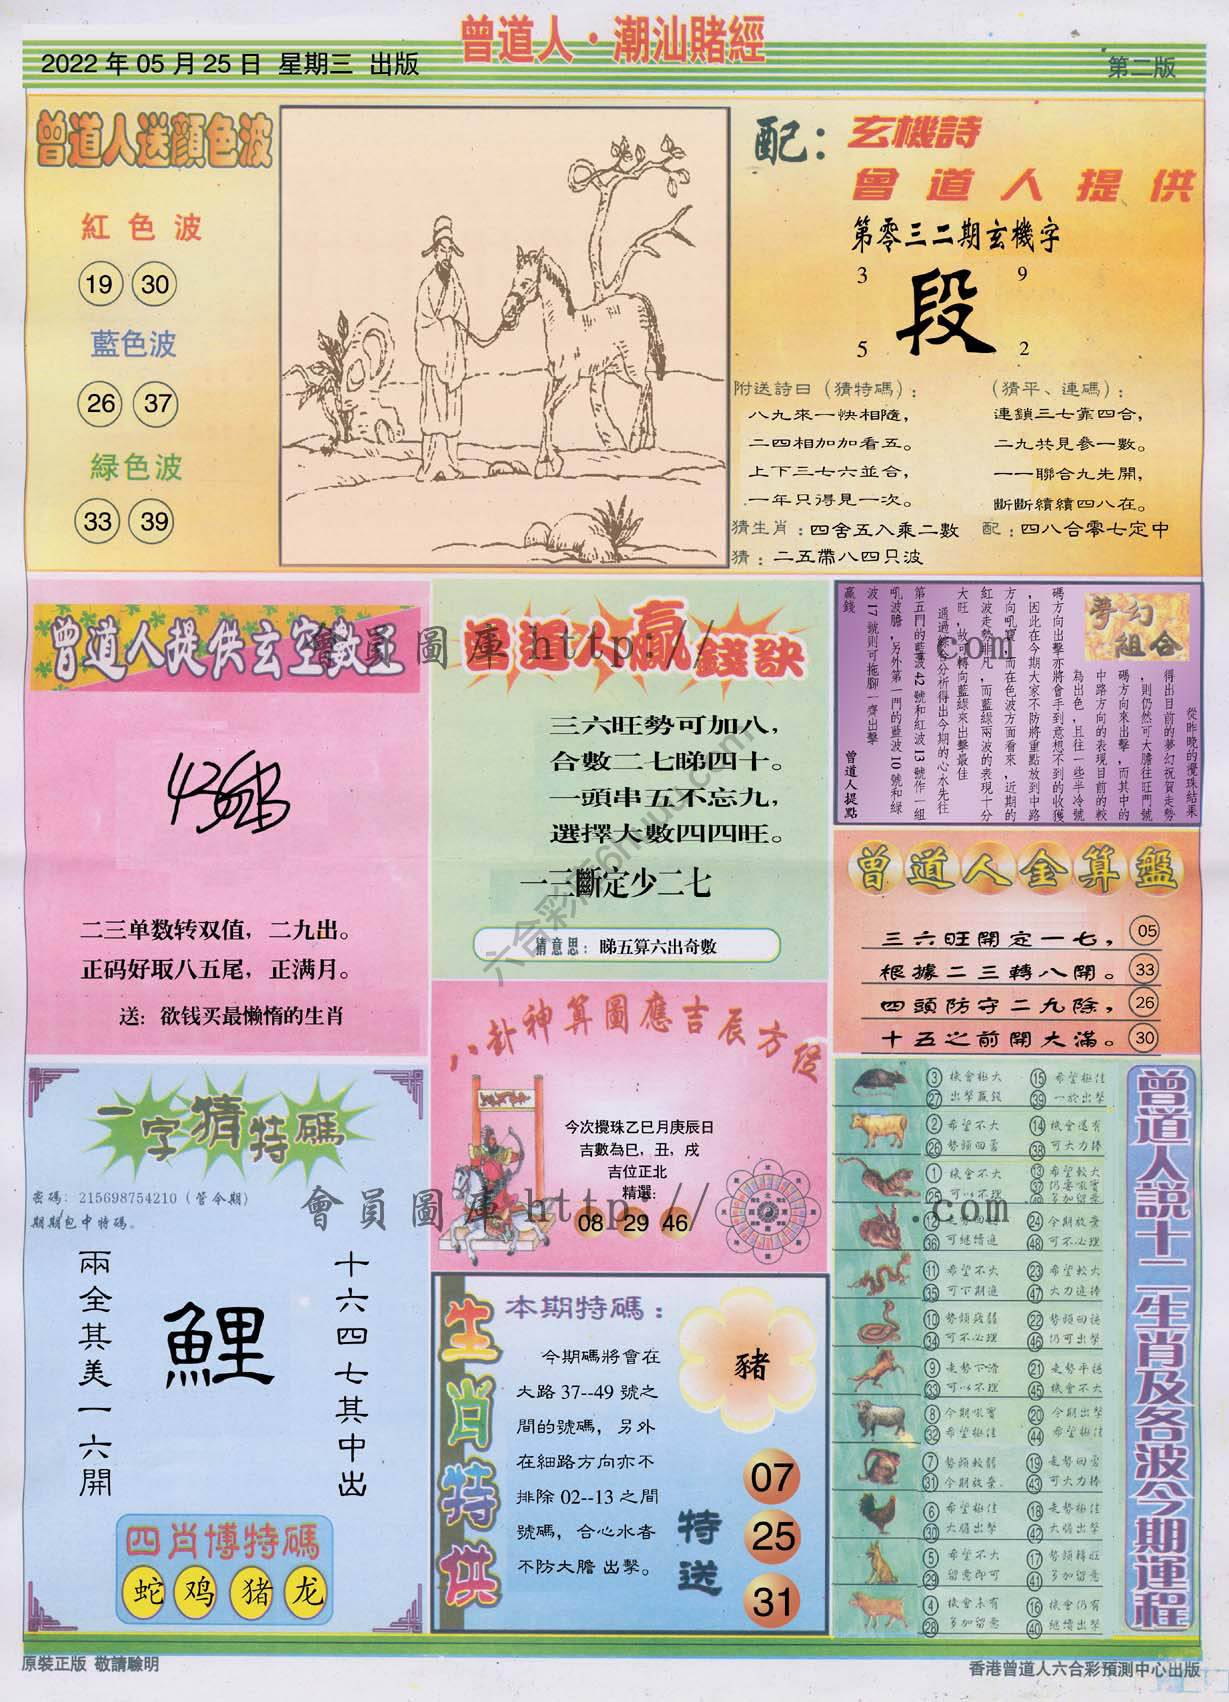 曾道人·潮汕賭經
2022 年 05 月 25 日 星期三 出版
第二版
曾道人送顏色波
紅色波
19 30
藍色波
26 37
緑色波
33 39
配：玄機詩
曾道人提供
第零三二期玄機字
3 9
段
5 2
附送詩曰（猜特碼）：
八九來一快相隨，
二四相加加看五。
上下三七六並合，
一年只得見一次。
（猜平、連碼）：
連鎖三七靠四合，
二九共見參一數。
一一聯合九先開，
斷斷續續四八在。
猜生肖：四舍五入乘二數 配：四八合零七定中
猜：二五帶八四只波
曾道人提供玄空數王
二三单数转双值，二九出。
正码好取八五尾，正满月。
送：欲钱买最懒惰的生肖
曾道人贏錢訣
三六旺勢可加八，
合數二七睇四十。
一頭串五不忘九，
選擇大數四四旺。
一三斷定少二七
猜意思：睇五算六出奇數
夢幻組合
從昨晚的攪珠結果
得出目前的夢幻祝賀走勢
，則仍然可大膽往旺門號
碼方向來出擊，而其中的
中路方向的表現目前的較
為出色，且往一些半冷號
碼方向出擊亦將會手到意想不到的收獲
，因此在今期大家不防將重點放到中路
方向吼寶，而在色波方面看來，近期的
紅波走勢非凡，而藍綠兩波的表現十分
大旺，故可轉向藍綠來出擊最佳
通過綜合分析得出今期的心水先往
第五門的藍波 42 號和紅波 13 號作一組
吼波膽，另外第一門的藍波 10 號和綠
波 17 號則可拖腳一齊出擊
贏錢
曾道人提點
曾道人金算盤
三六旺開定一七， 05
根據二三轉八開。 33
四頭防守二九除， 26
十五之前開大滿。 30
八卦神算圖應吉辰方位
今次攪珠乙巳月庚辰日
吉數為巳，丑，戌
吉位正北
精選：
08 29 46
一字猜特碼
密碼：215698754210（管今期）
期期包中特碼。
兩全其美一六開
鯉
十六四七其中出
四肖博特碼
蛇 鸡 猪 龙
生肖特供
本期特碼：
今期碼將會在
大路 37--49 號之
間的號碼，另外
在細路方向亦不
排除 02--13 之間
號碼，合心水者
不防大膽 出擊。
豬
特送
07
25
31
曾道人説十二生肖及各波今期運程
3 機會極大 15 希望極佳
27 出擊贏錢 39 一於出擊
2 希望不大 14 機會還有
26 勢頭回勇 38 可大力捧
1 機會不大 13 希望較大
25 可以不理 37 仍要吼實
49 多加留意
24 今期放棄
36 可繼續進 48 可不必理
11 希望不大 23 希望較大
35 可下期進 47 大力進捧
10 勢頭疲弱 22 勢頭回穩
34 可不必理 46 仍可出擊
9 走勢下滑 21 走勢平穩
33 可以不理 45 機會不大
8 今期吼實 20 今期出擊
32 希望極佳 44 希望極佳
7 勢頭較弱 19 走勢回勇
31 今期放棄 43 可大力捧
6 希望極佳 18 走勢極佳
30 大膽出擊 42 大膽出擊
5 希望不大 17 勢頭轉旺
29 留意即可 41 多加留意
4 機會未有 16 機會仍有
28 多加留意 40 繼續出擊
會員圖庫 http:// .com
會員圖庫 http:// .com
六合彩库6huuu.com
原裝正版 敬請驗明
香港曾道人六合彩預測中心出版